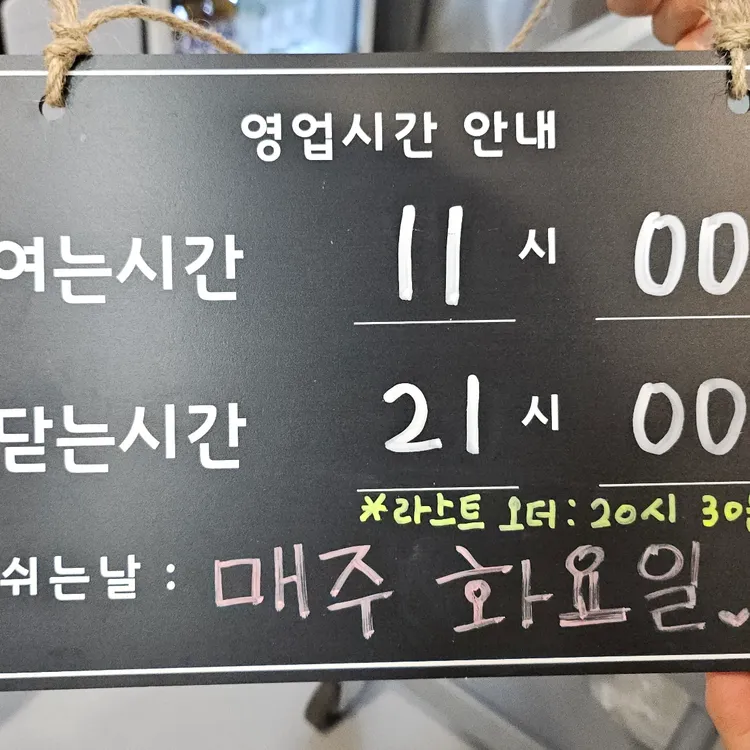 영업시간 안내
여는시간 11 시 00
닫는시간 21 시 00
*라스트 오더 : 20시 30분
쉬는날 : 매주 화요일